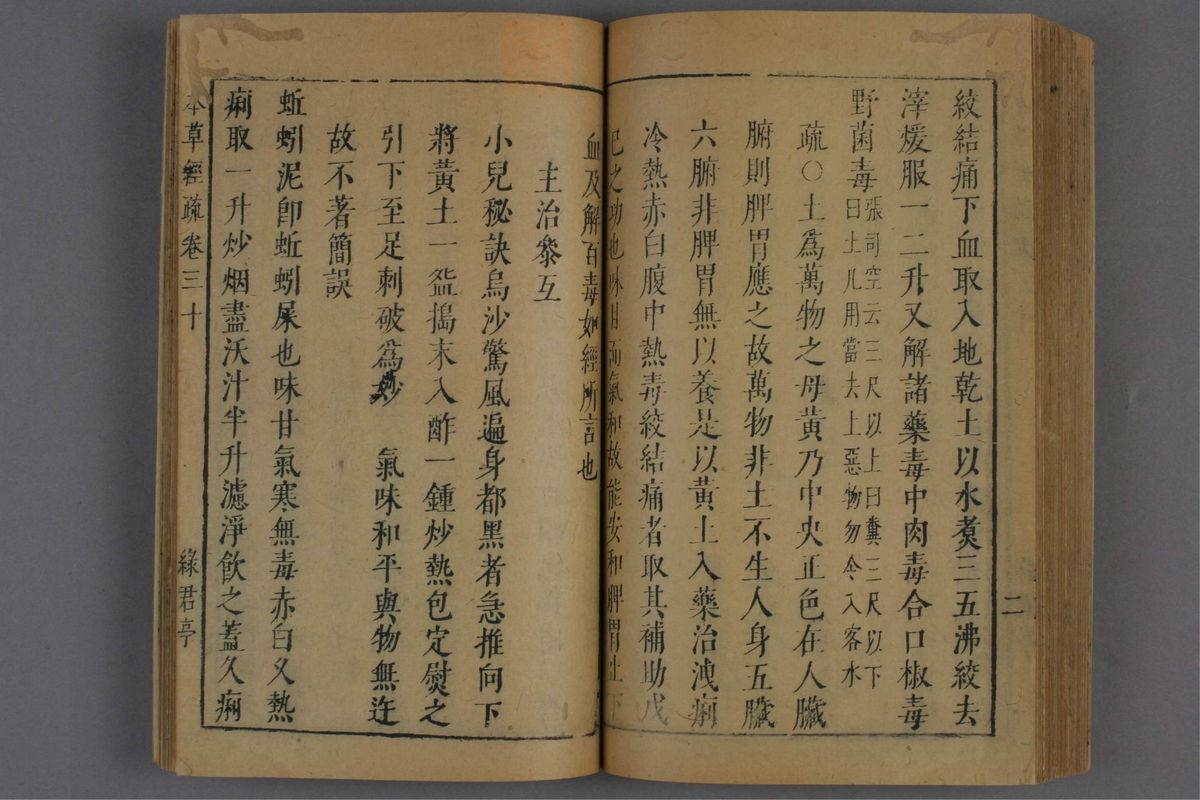 絞結痛下血取入地乾土以水煑三五沸絞去
滓煖服一二升又解諸藥毒中肉毒合口椒毒
野菌毒
張司空云三尺以上曰糞三尺以下
曰土凡用當去上惡物勿令入客水
疏○土爲萬物之母黃乃中央正色在人臟
腑則脾胃應之故萬物非土不生人身五臟
六腑非脾胃無以養是以黃土入藥治洩痢
冷熱赤白腹中熱毒絞結痛者取其補助戊
己之功也味甘而氣和故能安和脾胃止下
二
血及解百毒如經所言也
主治叅互
小兒秘訣烏沙驚風遍身都黑者急推向下
將黃土一盌搗末入酢一鍾炒熱包定熨之
引下至足刺破爲妙 氣味和平與物無迕
故不著簡誤
蚯蚓泥卽蚯蚓屎也味甘氣寒無毒赤白乆熱
痢取一升炒烟盡沃汁半升濾淨飲之蓋久痢
本草經疏卷三十 綠君亭